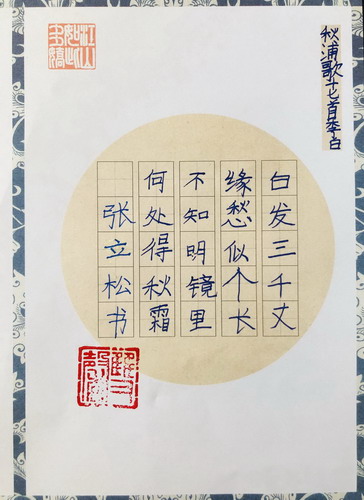 秋浦歌十七首李白
白发三千丈
缘愁似个长
不知明镜里
何处得秋霜
张立松书
江山如此多娇